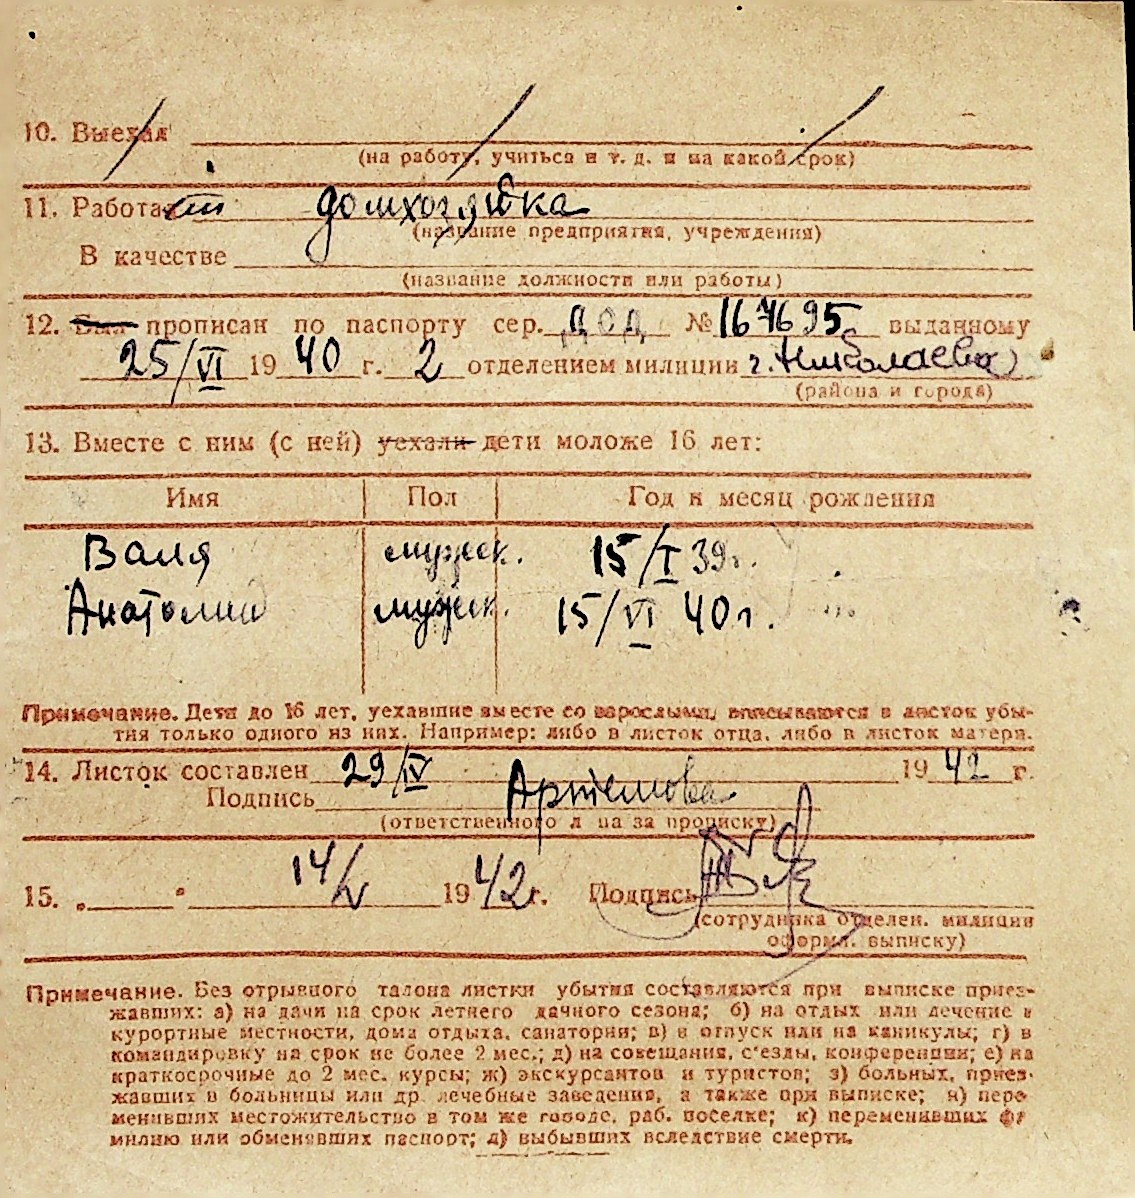 10. Выехал
(на работу, учиться и т. д. и на какой срок)
11. Работает домхозяйка
(название предприятия, учреждения)
В качестве
(название должности или работы)
12. Был прописан по паспорту сер. ДОД № 167695 выданному
25/VI 1940 г. 2 отделением милиции г. Николаева
(района и города)
13. Вместе с ним (с ней) уехали дети моложе 16 лет:
Имя Пол Год и месяц рождения
Валя мужск. 15/I 39г.
Анатолий мужск. 15/VI 40г.
Примечание. Дети до 16 лет, уехавшие вместе со взрослыми, вписываются в листок убы-
тия только одного из них. Например: либо в листок отца, либо в листок матери.
14. Листок составлен 29/IV 1942 г.
Подпись Артемова
(ответственного л ца за прописку)
15. „ “ 14/V 1942г. Подпись
(сотрудника отделен. милиции
оформл. выписку)
Примечание. Без отрывного талона листки убытия составляются при выписке приез-
жавших: а) на дачи на срок летнего дачного сезона; б) на отдых или лечение в
курортные местности, дома отдыха, санатории; в) в отпуск или на каникулы; г) в
командировку на срок не более 2 мес.; д) на совещания, с'езды, конференции; е) на
краткосрочные до 2 мес. курсы; ж) экскурсантов и туристов; з) больных, приез-
жавших в больницы или др. лечебные заведения, а также при выписке; и) пере
менивших местожительство в том же городе, раб. поселке; к) переменивших фа
милию или обменявших паспорт; л) выбывших вследствие смерти.